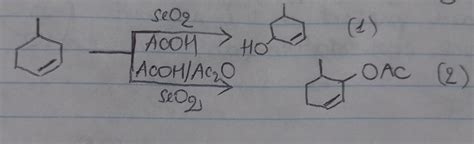 SeO2
AcOH
HO
(1)
AcOH/Ac2O
SeO2,
OAc
(2)